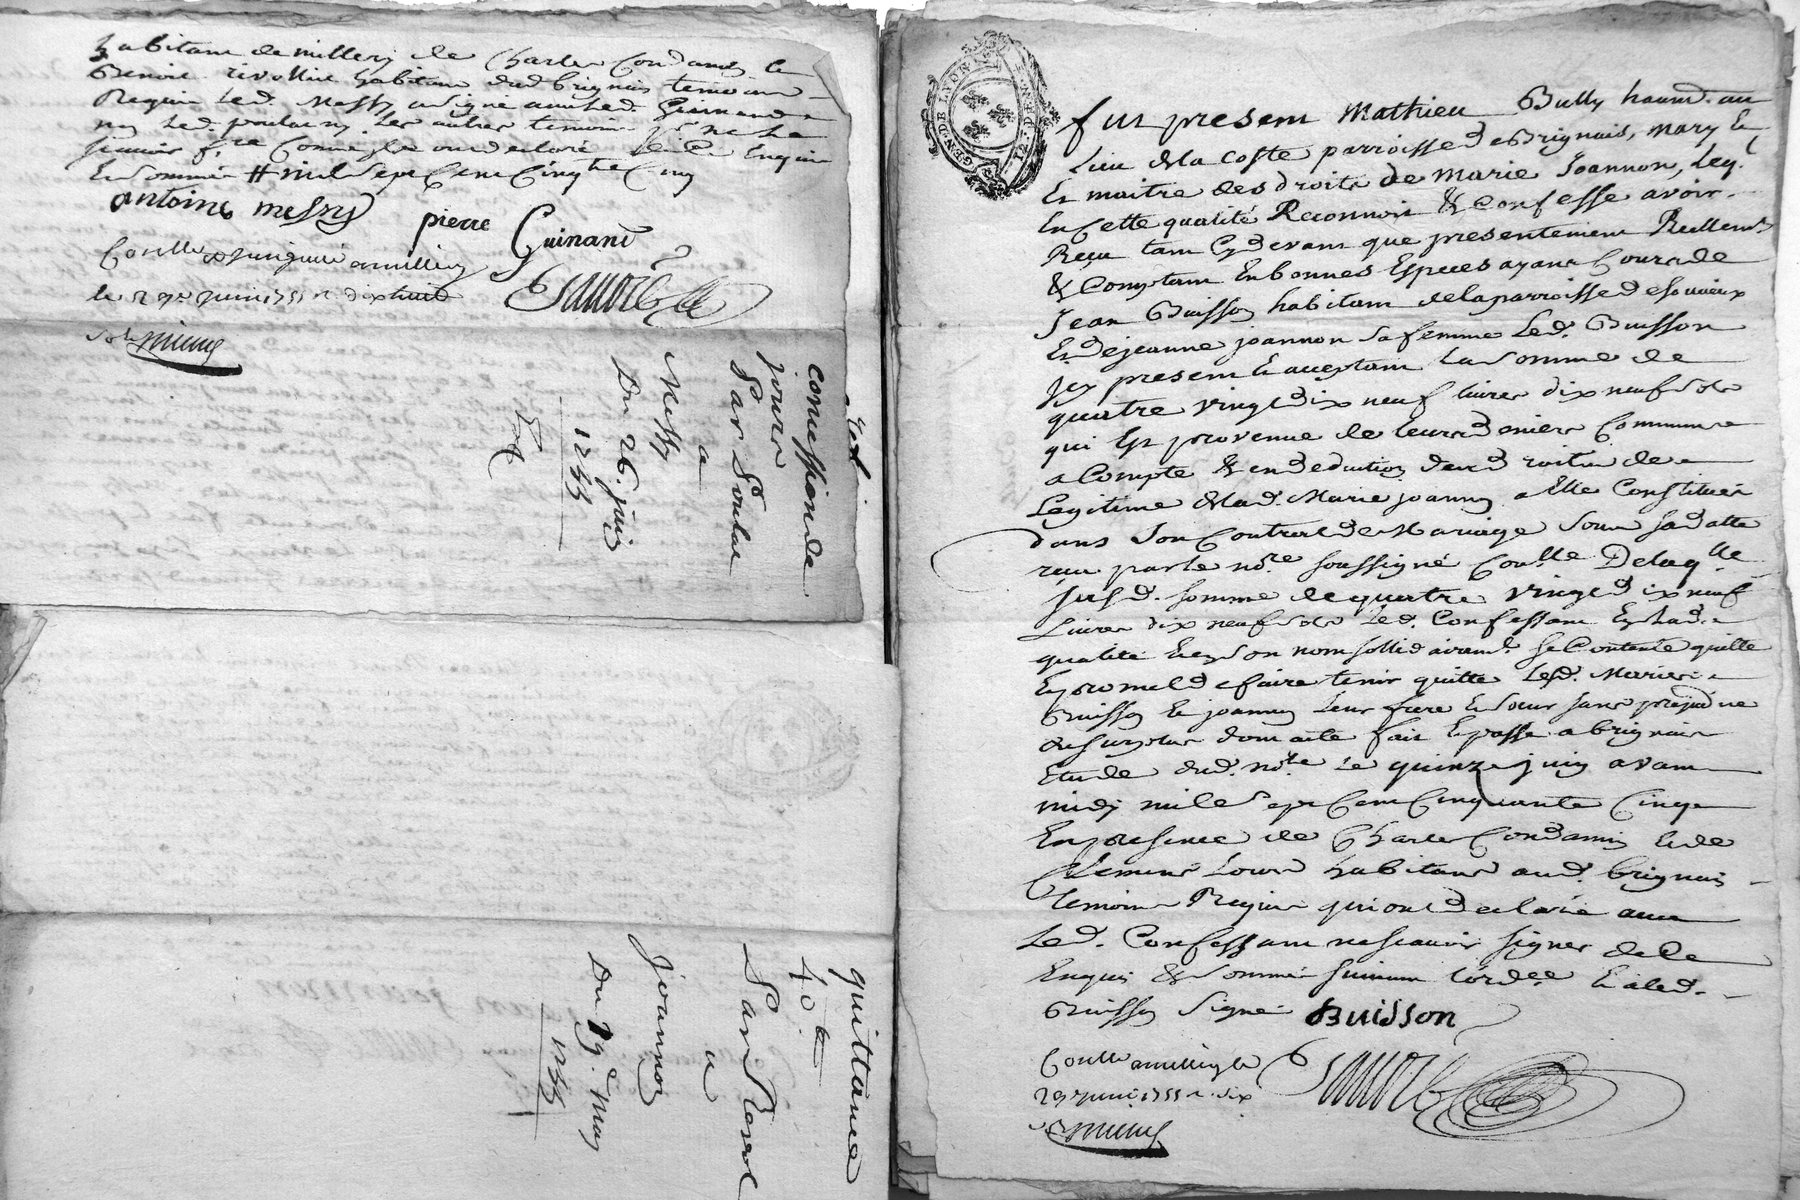 habitant de millery de Charles Condamin &
Benoit rivollier habitant dud brignais temoins
Requis led. Messy a signé avec led. Guinand
ny led. poulas ny les autres temoins pr ne le
scavoir f. re comme ils ont declaré de ce Enquis
Et sommés # mil sept Cent Cinqte Cinq
antoine messy
pierre Guinand
Conllé amillery
le 29e juin 1755 R dix huit
sols
Confession de
jours
Par Poulas
a
Messy
Du 26. juin
1755
Exd.
quittance
40 tt
Par
a
Joannon
Du 19e May
1755
GEN. DE LYON
fut present Mathieu Bully habnd. au
Lieu de la Coste parroisse de Brignais, mary &
Et maitre des droits de Marie Joannon, leql.
En Cette qualité Reconnoit & Confesse avoir
Reçu tant Cy devant que presentement Rëellemt
& Comptant En bonnes Especes ayant Cours de
Jean Buisson habitant de la parroisse de souvieux
Et de jeanne joannon sa femme Led. Buisson
Icy present & acceptant la somme de
quatre vingt dix neuf livres dix neuf sols
qui Est provenue de leurs deniers Communs
a Compte & en deduction des droits de
Legitime de lad. Marie joannon a Elle Constitués
dans son Contract de Mariage sous sa datte
reçu par le nore soussigné Conllé De laqlle
susd. somme de quatre vingt dix neuf
Livres dix neuf sols Led. Confessant En lad.
qualité & en son nom sollidairemt. se Contente quitte
Et promet de faire tenir quitte Lesd. Mariés
Buisson & joannon leur frere & soeur sans prejudice
du surplus dont acte fait & passé a brignais
Etude dud. nore le quinze juin avant
midy mil sept Cent Cinquante Cinq
En presence de Charles Condamin & de
Clement Lours habitans aud. brignais
temoins Requis qui ont declaré avec
Led. Confessant ne scavoir signer de Ce
Enquis & sommés suivant l'ordce & a led.
Buisson signé
Buisson
Conllé amillery le
29e juin 1755 R. dix